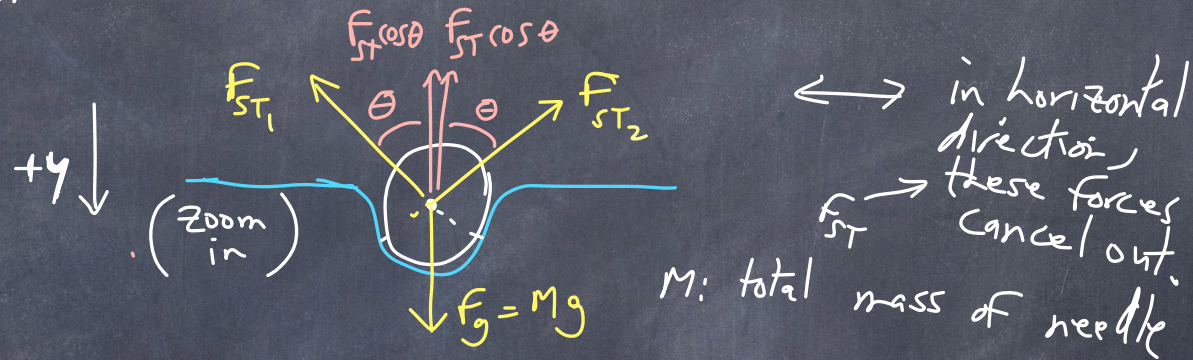 F_ST cosθ F_ST cosθ
F_ST1
θ
θ
F_ST2
+y
(zoom
in)
F_g = Mg
in horizontal
direction,
F_ST → these forces
cancel out.
M: total mass of needle